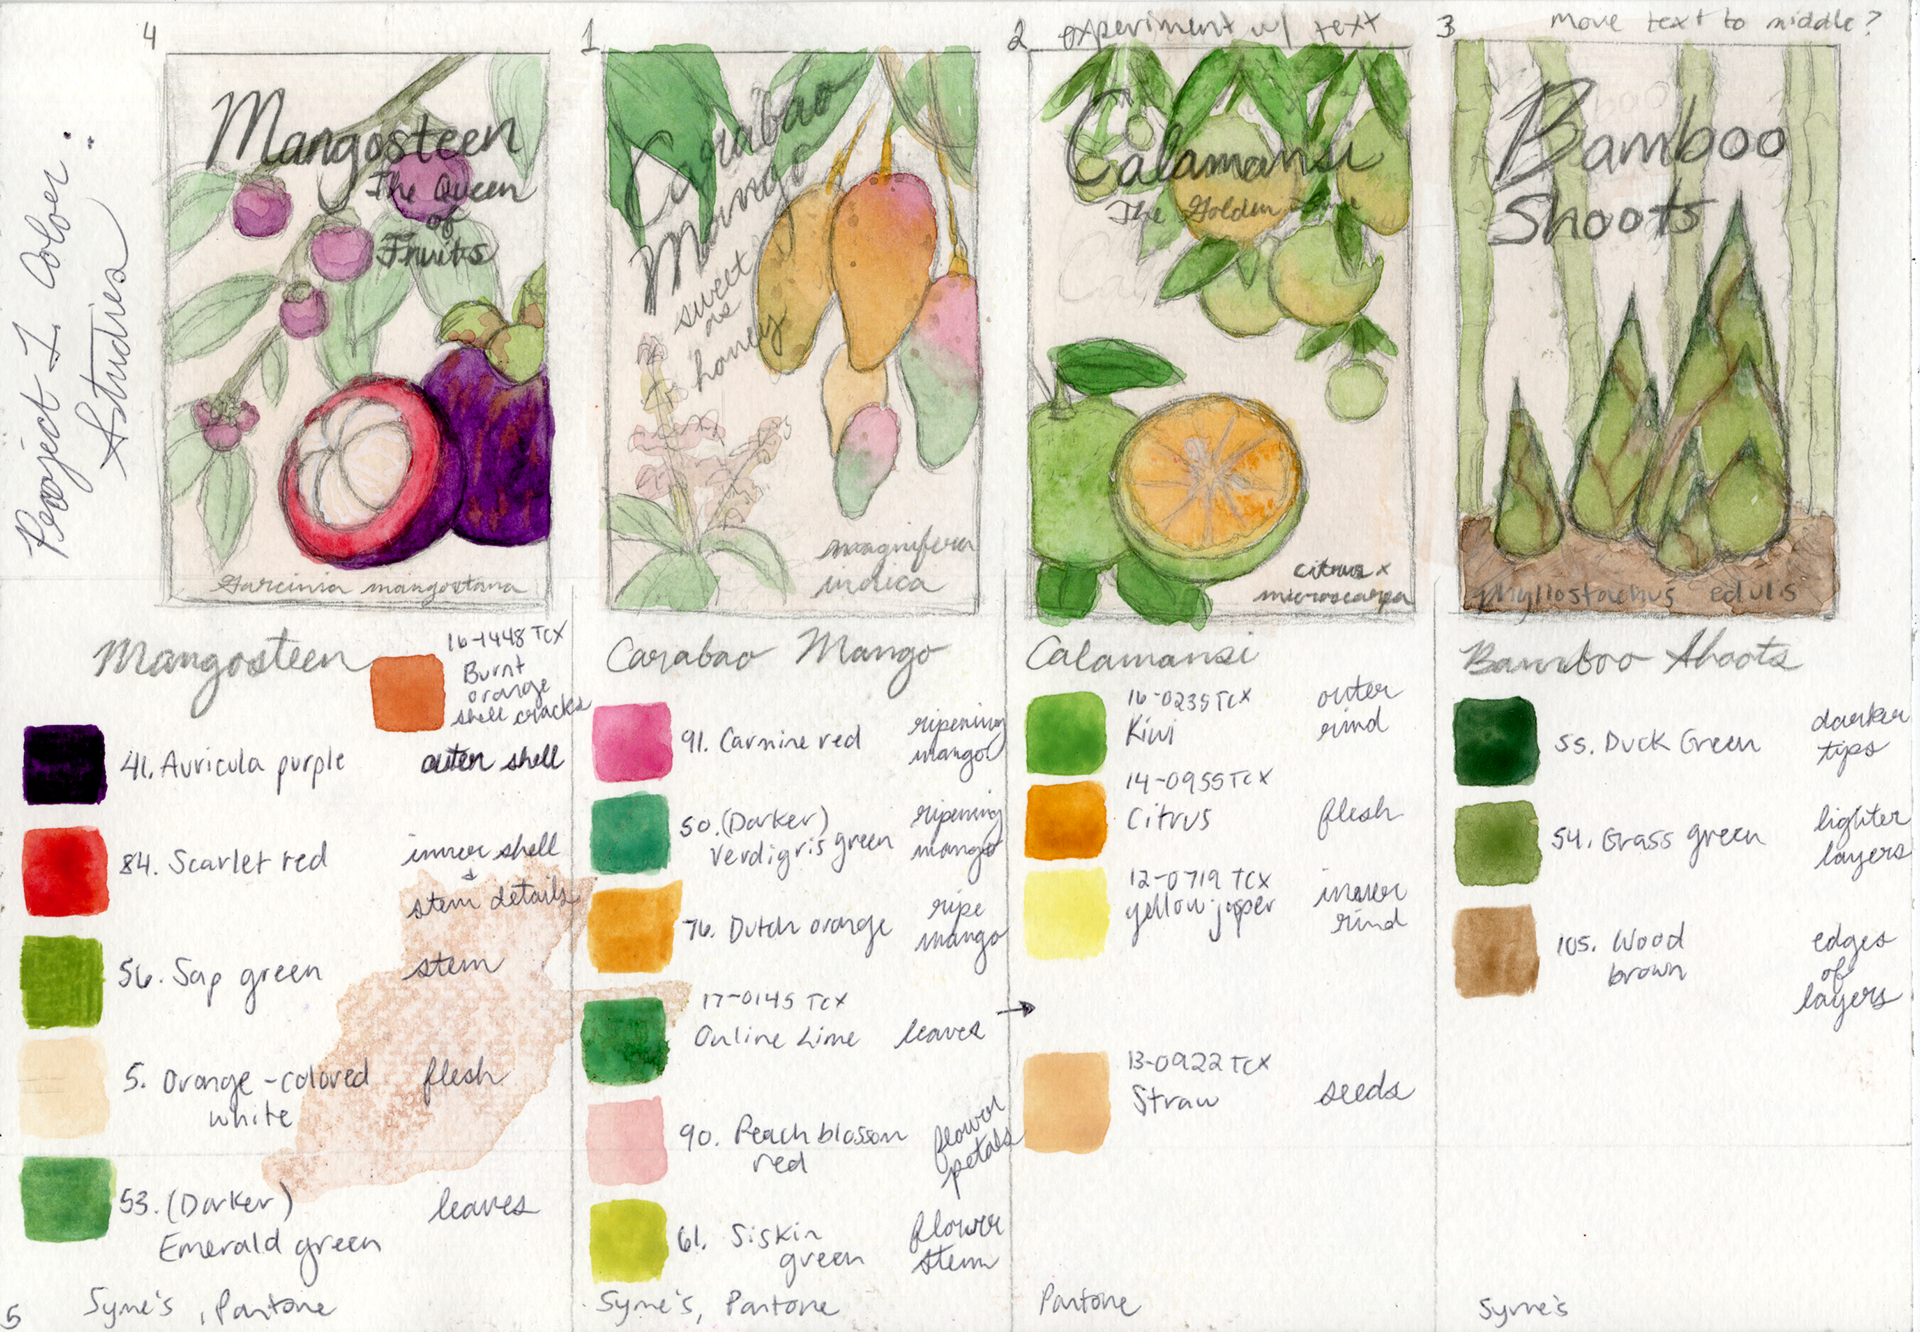 Project 1 Color
Studies
4
Mangosteen
The Queen
of
Fruits
Garcinia mangostana
1
Carabao
Mango
sweet
as
honey
magnifera
indica
2 experiment w/ text
Calamansi
The Golden Lime
citrus x
microcarpa
3 move text to middle?
Bamboo
Shoots
Phyllostachus edulis
Mangosteen
16-1448 TCX
Burnt
orange
shell cracks
41. Auricula purple outer shell
84. Scarlet red inner shell
& stem details
56. Sap green stem
5. Orange-colored flesh
white
53. (Darker) leaves
Emerald green
Syme's, Pantone
5
Carabao Mango
91. Carmine red ripening
mango
50. (Darker) ripening
Verdigris green mango
76. Dutch orange ripe
mango
17-0145 TCX
Online Lime leaves →
90. Peach blossom flower
red petals
61. Siskin flower
green stem
Syme's, Pantone
Calamansi
16-0235 TCX outer
Kiwi rind
14-0955 TCX
Citrus flesh
12-0719 TCX inner
yellow jasper rind
13-0922 TCX
Straw seeds
Pantone
Bamboo Shoots
55. Duck Green darker
tips
54. Grass green lighter
layers
105. Wood edges
brown of
layers
Syme's